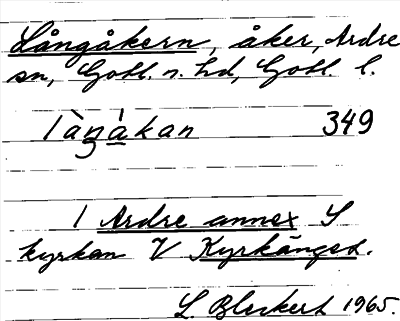 Långåkern, åker, Ardre
sn, Gotl. n. hd, Gotl. l.
làŋàkan 349
1 Ardre annex S
kyrkan V Kyrkänget.
L. Bleckert 1965.